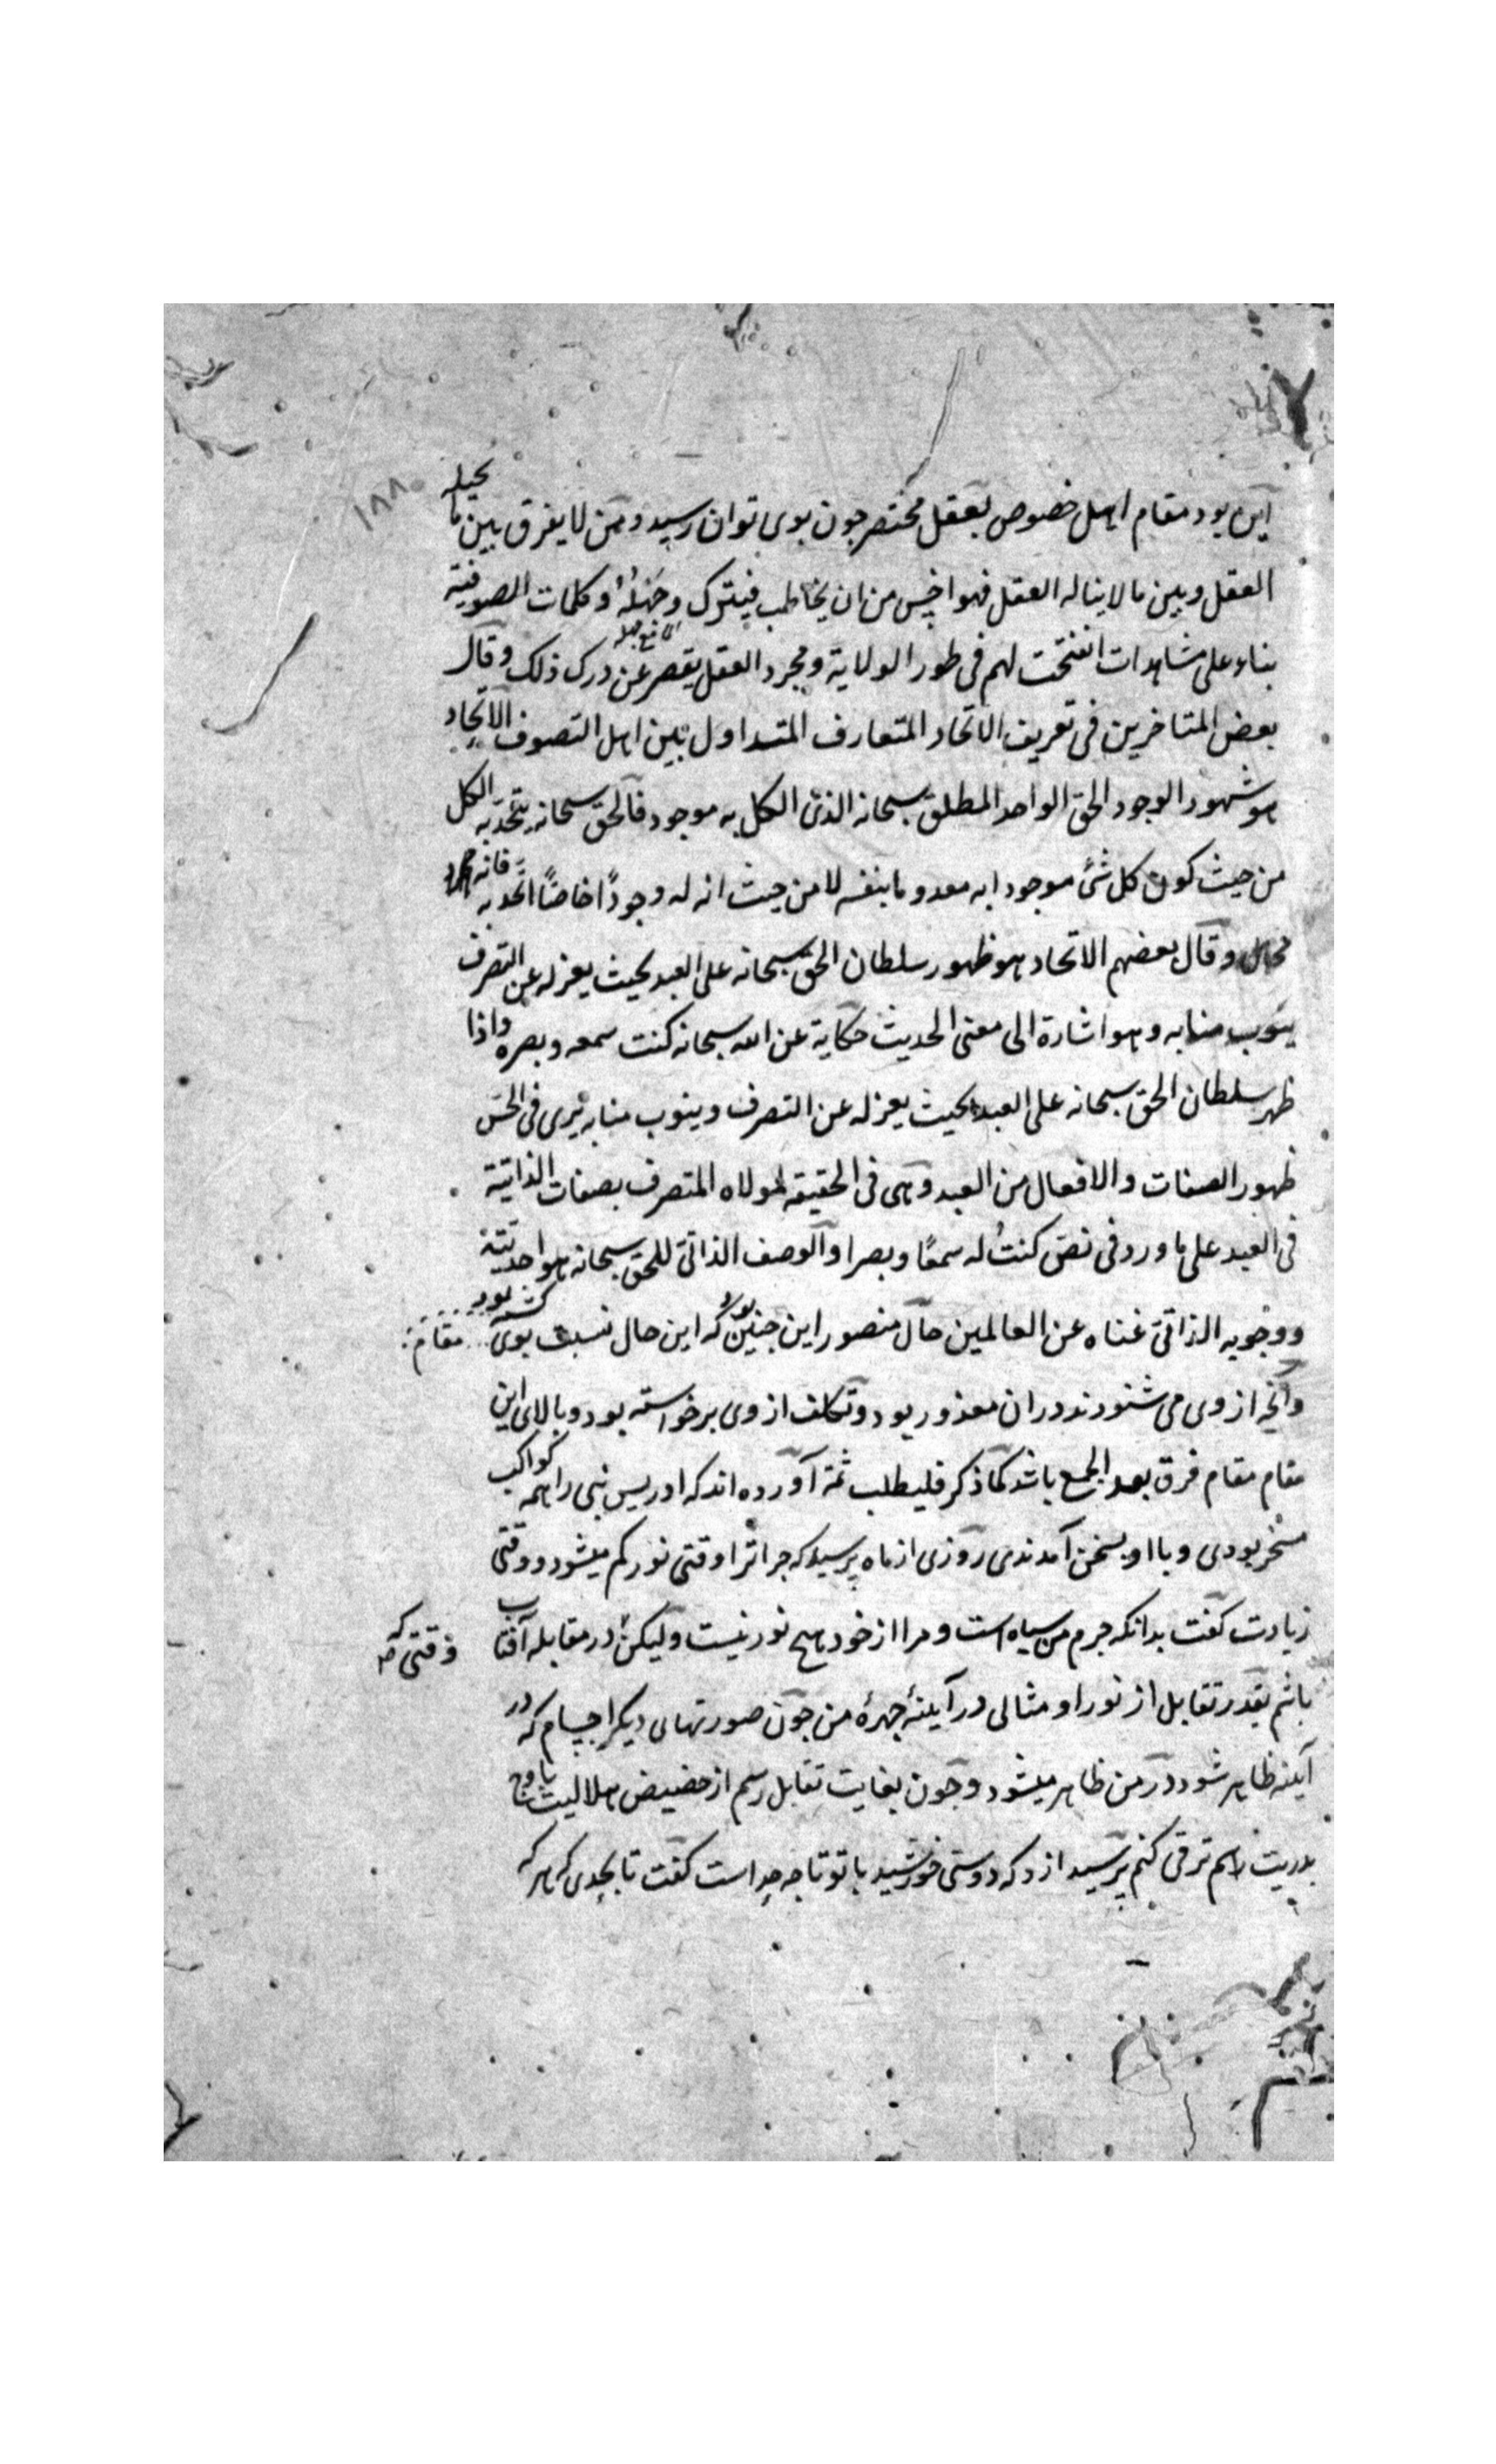 ۱۸۸
این بود مقام اهل خصوص بعقل مختصر جون بوی توان رسید و من لا یفرق بین ما یحیله
العقل و بین ما لا یناله العقل فهو اخس من ان یخاطب فیترک و جهله و کلمات الصوفیة
ای مع جهله
بناء علی مشاهدات انفتحت لهم فی طور الولایة و مجرد العقل یقصر عن درک ذلک و قال
بعض المتاخرین فی تعریف الاتحاد المتعارف المتداول بین اهل التصوف الاتحاد
هو شهود الوجود الحق الواحد المطلق سبحانه الذی الکل به موجود فالحق سبحانه یتحد به الکل
من حیث کون کل شئ موجودا به معدوما بنفسه لا من حیث انه له وجودًا خاصًا اتحد به فانه
محال و قال بعضهم الاتحاد هو ظهور سلطان الحق سبحانه علی العبد بحیث یعزله عن التصرف
ینوب منابه و هو اشارة الی معنی الحدیث حکایة عن الله سبحانه کنت سمعه و بصره و اذا
ظهر سلطان الحق سبحانه علی العبد بحیث یعزله عن التصرف و ینوب منابه یری فی الحس
ظهور الصفات و الافعال من العبد و هی فی الحقیقه لمولاه المتصرف بصفات الذاتیة
فی العبد علی ما ورد فی نص کنتُ له سمعًا و بصرا و الوصف الذاتی للحق سبحانه هو احدیته
و وجوبه الذاتی غناه عن العالمین حال منصور این جنین بود که این حال نسبت بوی مقام کشته بود
و آنجه از وی می شنودند دران معذور بود و تکلف از وی برخواسته بود و بالای این
مقام مقام فرق بعد الجمع باشد کما ذکر فلیطلب ثمة آورده اند که ادریس نبی را همه کواکب
مسخر بودی و با او بسخن آمدندی روزی از ماه پرسید که جرا ترا وقتی نور کم میشود و وقتی
زیادت کفت بدانکه جرم من سیاه است و مرا از خود هیج نور نیست و لیکن در مقابله آفتاب
وقتی که
باشم بقدر تقابل از نور او مثالی در آینهٔ جهرهٔ من جون صورتهای دیکر اجسام که در
آینه ظاهر شود در من ظاهر میشود و جون بغایت تقابل رسم از حضیض هلالیت باوج
بدریت راهم ترقی کنم پرسید ازو که دوستی خورشید با تو تا جه حد است کفت تا بحدی که هر که